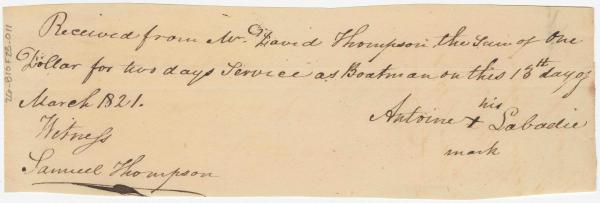 Received from Mr. David Thompson the Sum of One
Dollar for two days Service as Boatman on this 13th day of
March 1821.
his
Antoine + Labadie
mark
Witness
Samuel Thompson